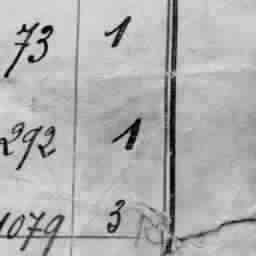 73 1
292 1
1079 3